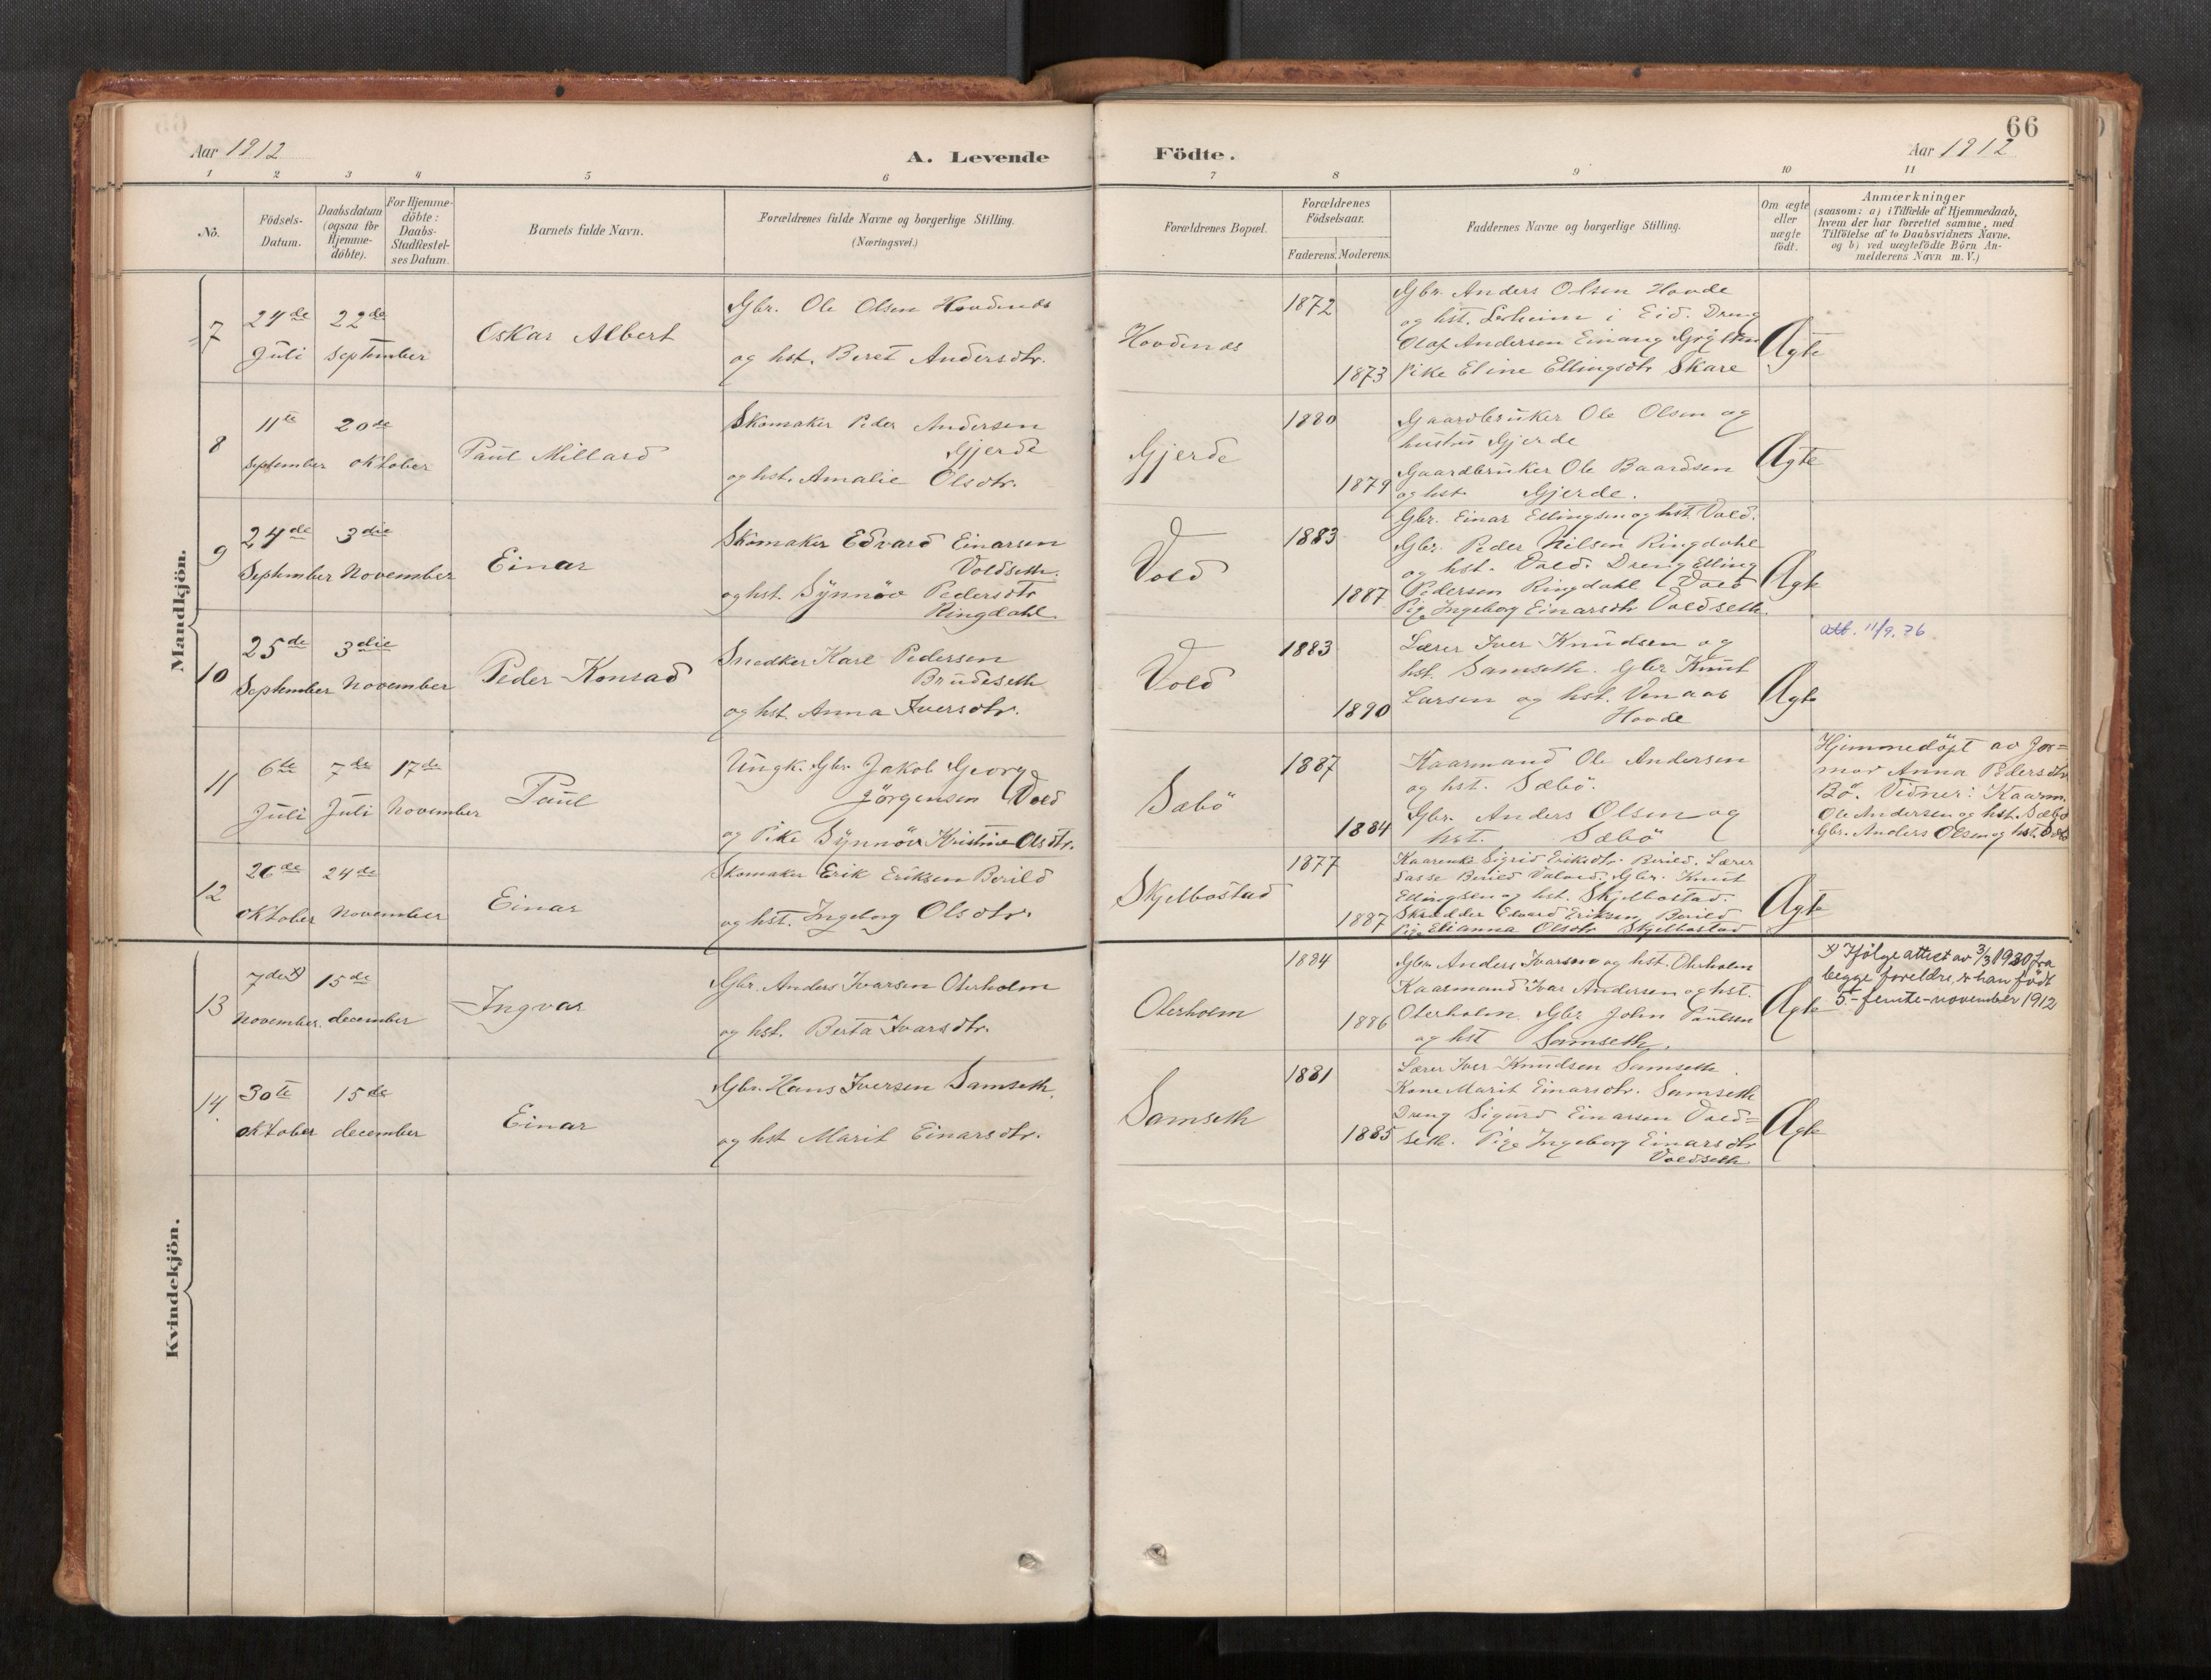 66
Aar 1912
A. Levende
Födte.
Aar 1912
1 2 3 4 5 6 7 8 9 10 11
No.
Födsels-
Datum.
Daabsdatum
(ogsaa för
Hjemme-
döbte).
For Hjemme-
döbte:
Daabs-
Stadfæstel-
ses Datum.
Barnets fulde Navn.
Forældrenes fulde Navne og borgerlige Stilling.
(Næringsvei.)
Forældrenes Bopæl.
Forældrenes
Födselsaar.
Faderens. Moderens.
Faddernes Navne og borgerlige Stilling.
Om ægte
eller
uægte
födt.
Anmærkninger
(saasom: a) i Tilfælde af Hjemmedaab,
hvem der har forrettet samme, med
Tilföielse af to Daabsvidners Navne.
og b) ved uægtefödte Börn An-
melderens Navn m. V.)
Mandkjön.
7
24de
Juli
22de
September
Oskar Albert
Gbr. Ole Olsen Hovdenes
og hst. Beret Andersdtr.
Hovdenes
1872
1873
Gbr. Anders Olsen Hovde
og hst. Leiheim i Eid. Dreng
Olaf Andersen Einang
Pike Eline Ellingsdtr Skare
Ægte
8
11te
September
20de
Oktober
Paul Millard
Skomaker Peder Andersen
Gjerde
og hst. Amalie Olsdtr.
Gjerde
1880
1879
Gaardbruker Ole Olsen og
hustru Gjerde
Gaardbruker Ole Baardsen
og hst. Gjerde.
Ægte
9
24de
September
3die
November
Einar
Skomaker Edvard Einarsen
Voldseth.
og hst. Synnöv Pedersdtr
Ringdahl
Vold
1883
1887
Gbr. Einar Ellingsen og hst. Vold.
Gbr. Peder Nilsen Ringdahl
og hst. Vold. Dreng Elling
Pedersen Ringdahl Vold
Pige Ingeborg Einarsdtr Voldseth.
Ægte
10
25de
September
3die
November
Peder Konrad
Snedker Karl Pedersen
Brudeseth
og hst. Anna Iversdtr.
Vold
1883
1890
Lærer Iver Knudsen og
hst. Samseth. Gbr Knut
Larsen og hst. Venaas
Hovde
Ægte
Att. 11/9.76
11
6te
Juli
7de
Juli
17de
November
Paul
Ungk. Gbr. Jakob Georg
Jörgensen Vold
og Pike Synnöv Kristine Olsdtr.
Sæbö
1887
1884
Kaarmand Ole Andersen
og hst. Sæbö.
Gbr. Anders Olsen og
hst. Sæbö
Hjemmedöpt av Jor=
mor Anna Pedersdtr
Bö. Vidner: Kaarm.
Ole Andersen og hst. Sæbö
Gbr. Anders Olsen og hst. Sæbö
12
26de
Oktober
24de
November
Einar
Skomaker Erik Eriksen Berild
og hst. Ingeborg Olsdtr.
Skjelbostad
1877
1887
Kaarenke Sigrid Eriksdtr. Berild. Lærer
Lasse Berild Gbr. Knut
Ellingsen og hst. Skjelbostad.
Skrædder Edvard Eriksen Berild
Pige Elianna Olsdtr Skjelbostad
Ægte
13
7de x)
November
15de
december
Ingvar
Gbr. Anders Ivarsen Oterholm
og hst. Berta Ivarsdtr.
Oterholm
1884
1886
Gbr. Anders Ivarsen og hst. Oterholm
Kaarmand Ivar Andersen og hst.
Oterholm. Gbr John Paulsen
og hst Samseth.
Ægte
x) Ifölge attest av 3/3 1930 fra
begge foreldre, er han födt
5.- femte-november 1912
14
30te
Oktober
15de
december
Einar
Gbr. Hans Iversen Samseth.
og hst Marit Einarsdtr.
Samseth
1881
1885
Lærer Iver Knudsen Samseth.
Kone Marit Einarsdtr. Samseth
Dreng Sigurd Einarsen Vold=
seth. Pige Ingeborg Einarsdtr
Voldseth
Ægte
Kvindekjön.